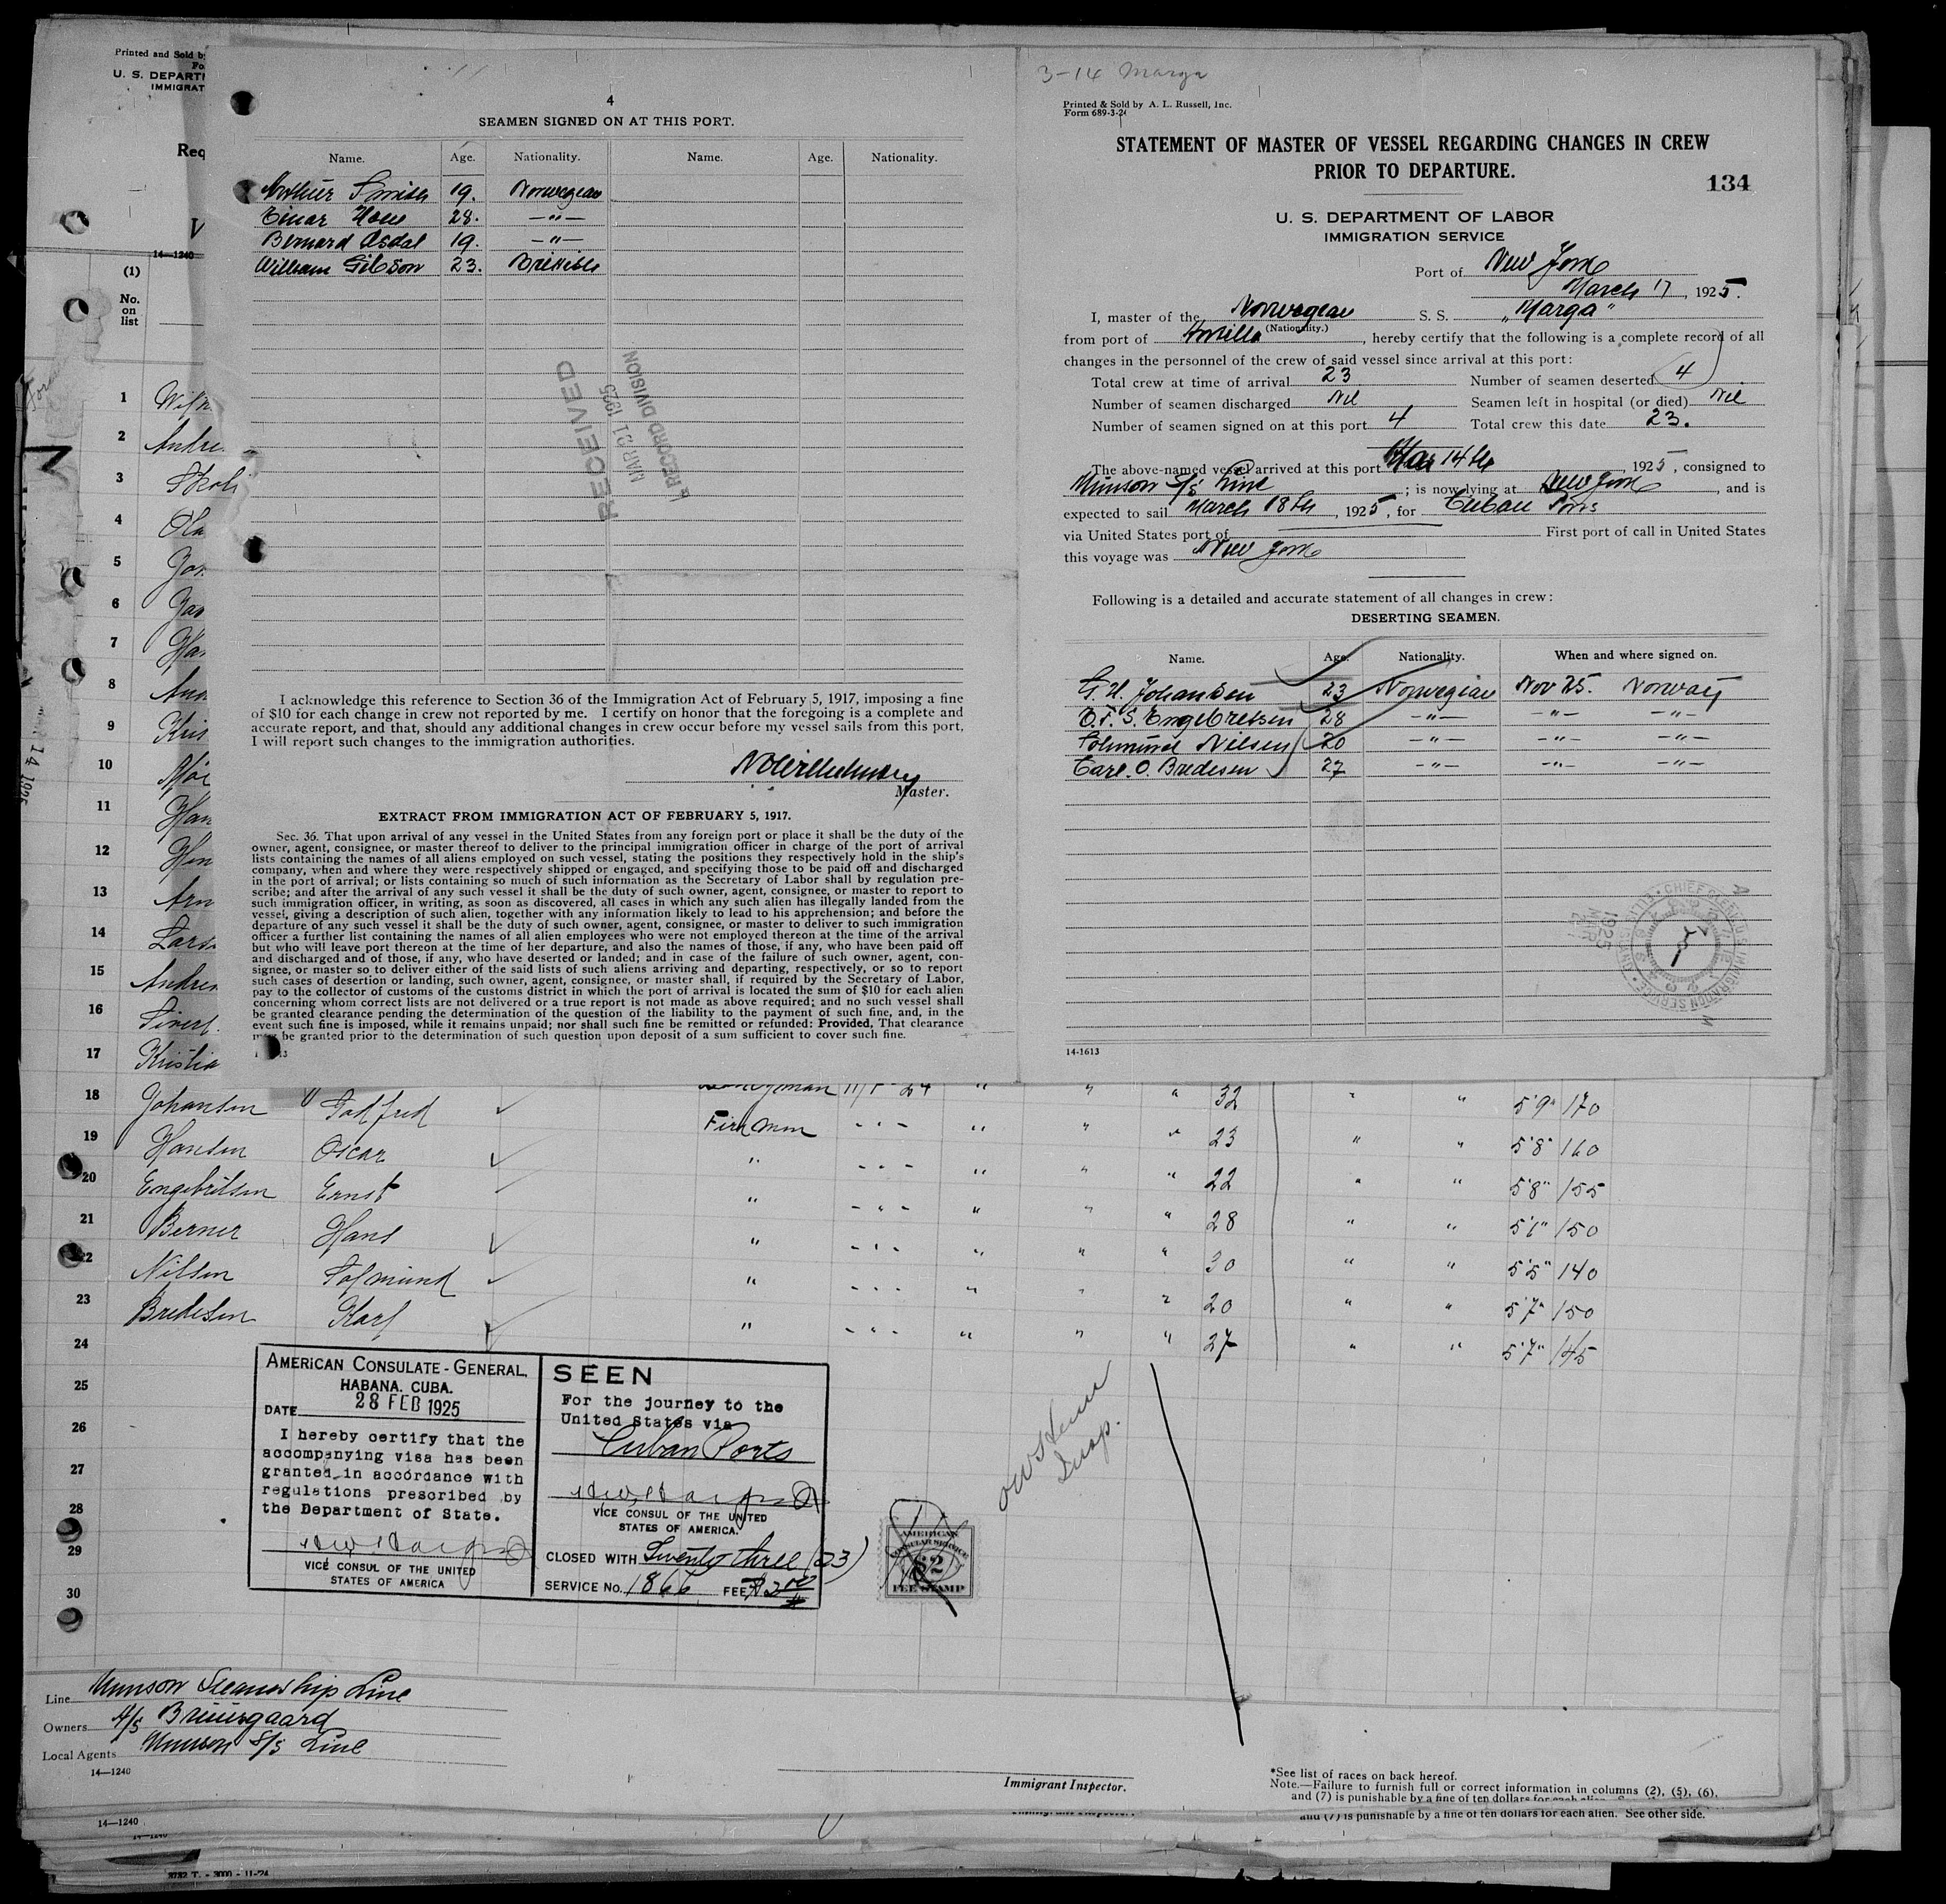 Printed and Sold by
Fo
U. S. DEPARTM
IMMIGRAT
Req
V
14—1240
(1)
No.
on
list
4
SEAMEN SIGNED ON AT THIS PORT.
Name. Age. Nationality. Name. Age. Nationality.
Arthur Smith 19. Norwegian
Einar 28. —"—
Bernard Asdal 19. —"—
William Gibson 23. Brittish
RECEIVED
MAR 21 1925
RECORD DIVISION
I acknowledge this reference to Section 36 of the Immigration Act of February 5, 1917, imposing a fine
of $10 for each change in crew not reported by me. I certify on honor that the foregoing is a complete and
accurate report, and that, should any additional changes in crew occur before my vessel sails from this port,
I will report such changes to the immigration authorities.
Master.
EXTRACT FROM IMMIGRATION ACT OF FEBRUARY 5, 1917.
Sec. 36. That upon arrival of any vessel in the United States from any foreign port or place it shall be the duty of the
owner, agent, consignee, or master thereof to deliver to the principal immigration officer in charge of the port of arrival
lists containing the names of all aliens employed on such vessel, stating the positions they respectively hold in the ship's
company, when and where they were respectively shipped or engaged, and specifying those to be paid off and discharged
in the port of arrival; or lists containing so much of such information as the Secretary of Labor shall by regulation pre-
scribe; and after the arrival of any such vessel it shall be the duty of such owner, agent, consignee, or master to report to
such immigration officer, in writing, as soon as discovered, all cases in which any such alien has illegally landed from the
vessel, giving a description of such alien, together with any information likely to lead to his apprehension; and before the
departure of any such vessel it shall be the duty of such owner, agent, consignee, or master to deliver to such immigration
officer a further list containing the names of all alien employees who were not employed thereon at the time of the arrival
but who will leave port thereon at the time of her departure, and also the names of those, if any, who have been paid off
and discharged and of those, if any, who have deserted or landed; and in case of the failure of such owner, agent, con-
signee, or master so to deliver either of the said lists of such aliens arriving and departing, respectively, or so to report
such cases of desertion or landing, such owner, agent, consignee, or master shall, if required by the Secretary of Labor,
pay to the collector of customs of the customs district in which the port of arrival is located the sum of $10 for each alien
concerning whom correct lists are not delivered or a true report is not made as above required; and no such vessel shall
be granted clearance pending the determination of the question of the liability to the payment of such fine, and, in the
event such fine is imposed, while it remains unpaid; nor shall such fine be remitted or refunded: Provided, That clearance
may be granted prior to the determination of such question upon deposit of a sum sufficient to cover such fine.
3-14 Marga
Printed & Sold by A. L. Russell, Inc.
Form 689-3-24
STATEMENT OF MASTER OF VESSEL REGARDING CHANGES IN CREW
PRIOR TO DEPARTURE.
134
U. S. DEPARTMENT OF LABOR
IMMIGRATION SERVICE
Port of New York
March 17, 1925.
I, master of the Norwegian S. S. "Marga"
(Nationality.)
from port of Antilla, hereby certify that the following is a complete record of all
changes in the personnel of the crew of said vessel since arrival at this port:
Total crew at time of arrival 23 Number of seamen deserted 4
Number of seamen discharged Nil Seamen left in hospital (or died) Nil
Number of seamen signed on at this port 4 Total crew this date 23.
The above-named vessel arrived at this port Mar 14th, 1925, consigned to
Munson S/S Line; is now lying at New York, and is
expected to sail March 18th, 1925, for Cuban Ports
via United States port of First port of call in United States
this voyage was New York
Following is a detailed and accurate statement of all changes in crew:
DESERTING SEAMEN.
Name. Age. Nationality. When and where signed on.
G. H. Johansen 23 Norwegian Nov 25. Norway
O. F. S. Engebretsen 28 —"— —"— —"—
Solmund Nilsen 20 —"— —"— —"—
Carl. O. Bredesen 27 —"— —"— —"—
14-1613
1 Wilh
2 Andre
3 Skoli
4 Ola
5 Joh
6
7 Han
8 And
9 Kris
10
11 Han
12 Hen
13 Arn
14 Lars
15 Andrea
16 Sivert
17 Kristia
18 Johansen Godfred 11/1 24 " " " 32 " " 5'9" 170
19 Hansen Oscar Fireman - - - " " " 23 " " 5'8" 160
20 Engebritsen Ernst " - - - " " " 22 " " 5'8" 155
21 Berner Hans " - - - " " " 28 " " 5'6" 150
22 Nilsen Solmund " - - - " " " 30 " " 5'5" 140
23 Bredesen Karl " - - - " " " 20 " " 5'7" 150
24 " - - - " " " 27 " " 5'7" 145
25
26
27
28
29
30
AMERICAN CONSULATE-GENERAL,
HABANA, CUBA.
DATE 28 FEB 1925
I hereby certify that the
accompanying visa has been
granted in accordance with
regulations prescribed by
the Department of State.
VICE CONSUL OF THE UNITED
STATES OF AMERICA
SEEN
For the journey to the
United States via
Cuban Ports
VICE CONSUL OF THE UNITED
STATES OF AMERICA.
CLOSED WITH Twenty three (23)
SERVICE NO. 1866 FEE $2.00
AMERICAN
CONSULAR SERVICE
$2
FEE STAMP
Insp.
Line Munson Steamship Line
Owners A/S Bruusgaard
Local Agents Munson S/S Line
14—1240
Immigrant Inspector.
*See list of races on back hereof.
Note.—Failure to furnish full or correct information in columns (2), (5), (6),
and (7) is punishable by a fine of ten dollars for each alien.
and (7) is punishable by a fine of ten dollars for each alien. See other side.
14—1240